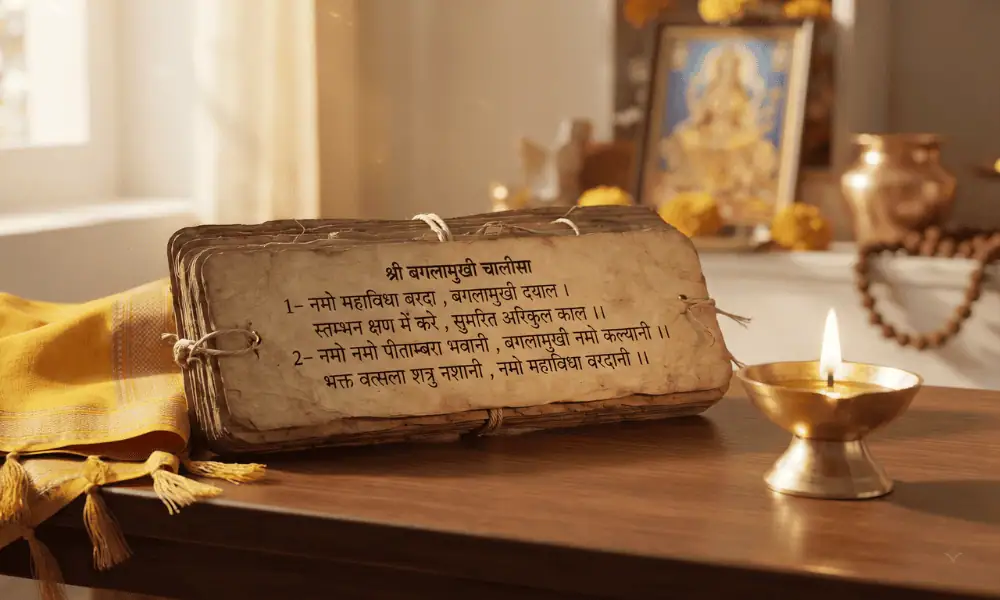 श्री बगलामुखी चालीसा
1– नमो महाविधा बरदा , बगलामुखी दयाल ।
स्तम्भन क्षण में करे , सुमरित अरिकुल काल ।।
2– नमो नमो पीताम्बरा भवानी , बगलामुखी नमो कल्यानी ।।
भक्त वत्सला शत्रु नशानी , नमो महाविधा वरदानी ।।